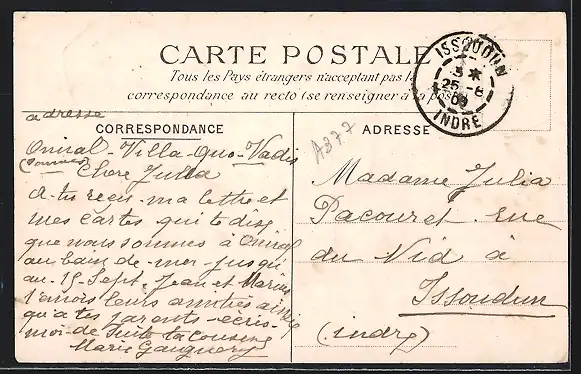 CARTE POSTALE
Tous les Pays étrangers n'acceptant pas la
correspondance au recto (se renseigner à la poste)
ISSOUDUN
3 *
25 - 8
09
INDRE
adresse
CORRESPONDANCE
Onival - Villa - Quo - Vadis
(Somme)
Chère Julia
A-tu reçu ma lettre et
mes cartes qui te dise
que nous sommes à Onival
au bain de mer jusqu'
au 15 Sept. Jean et
leurs amitiés ainsi
qu'a tes parents - écris-
moi de suite ta cousine
Marie
ADRESSE
A377
Madame Julia
Pacouret. Rue
du Nid à
Issoudun
(indre)